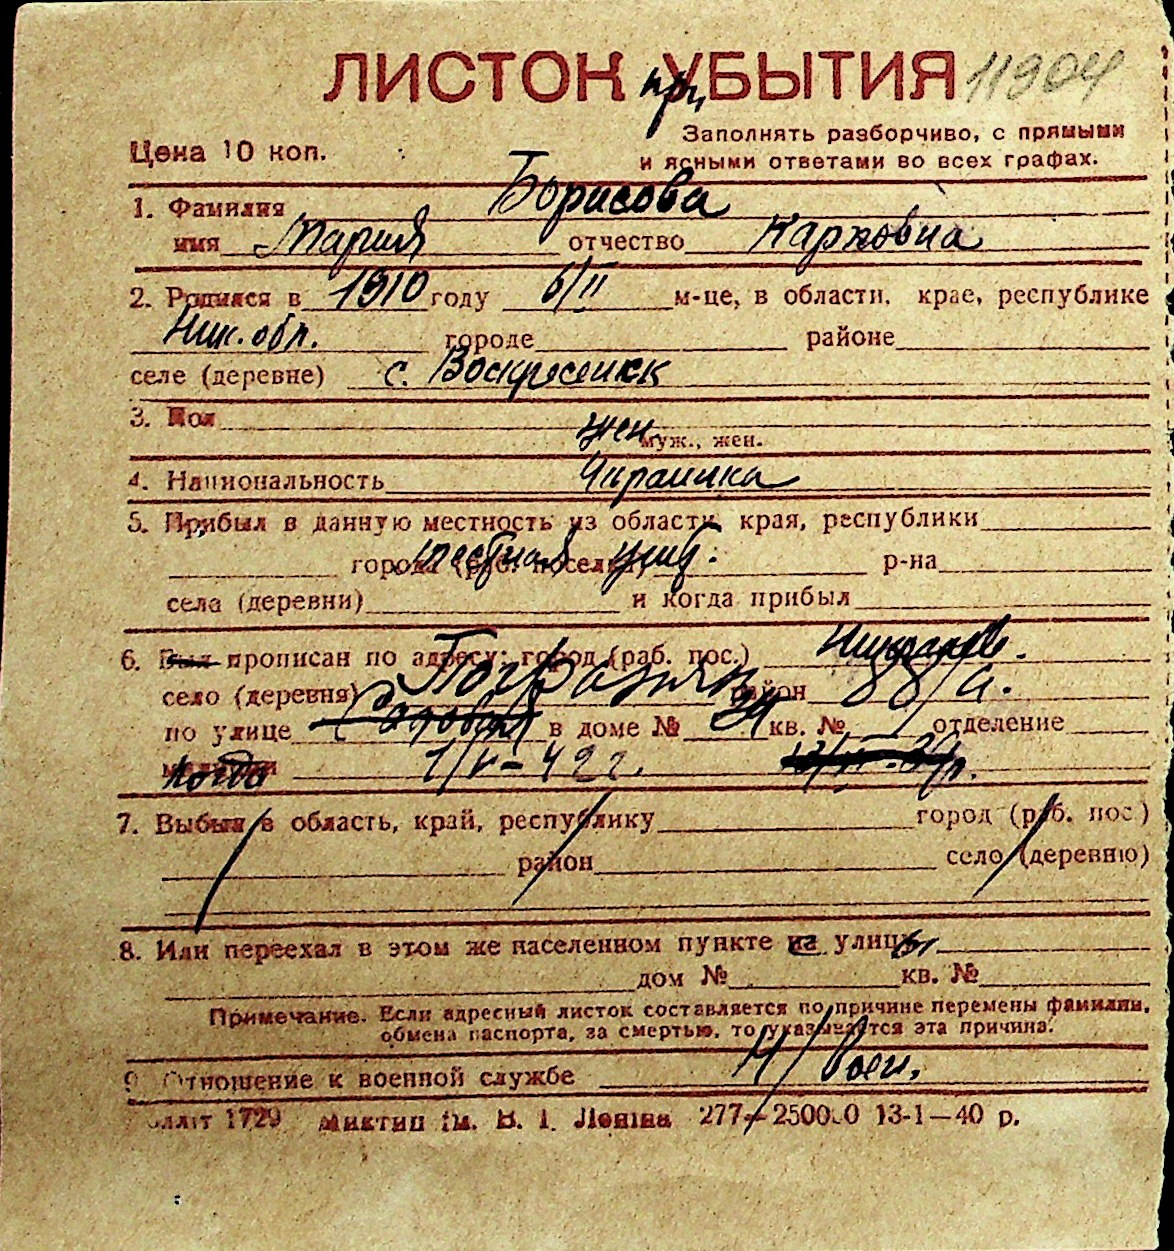 ЛИСТОК УБЫТИЯ 11904
при
Цена 10 коп.
Заполнять разборчиво, с прямыми
и ясными ответами во всех графах.
1. Фамилия Борисова
имя Мария отчество Карповна
2. Родился в 1910 году 6/II м-це, в области, крае, республике
Ник. обл. городе районе
селе (деревне) с. Воскресенск
3. Пол жен
муж., жен.
4. Национальность Украинка
5. Прибыл в данную местность из области, края, республики
города (раб. поселка) местная р-на
села (деревни) и когда прибыл
6. Был прописан по адресу: город (раб. пос.)
село (деревня) Погранич район 88/а.
по улице Садовая в доме № 34 кв. № отделение
когда 1/V-42 г.
7. Выбыл в область, край, республику город (раб. пос.)
район село (деревню)
8. Или переехал в этом же населенном пункте с улицы
дом № кв. №
Примечание. Если адресный листок составляется по причине перемены фамилии,
обмена паспорта, за смертью, то указывается эта причина.
9. Отношение к военной службе Н/воен.
1729 Миктип ім. В. І. Леніна 277—250000 13-1—40 р.